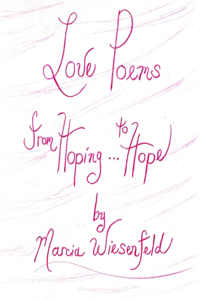 Love Poems
from Hoping ... to Hope
by
Marcia Wiesenfeld